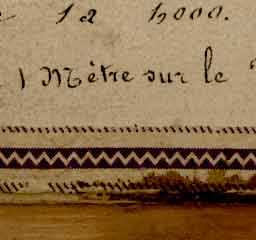 1 à 5000.
1 Mètre sur le